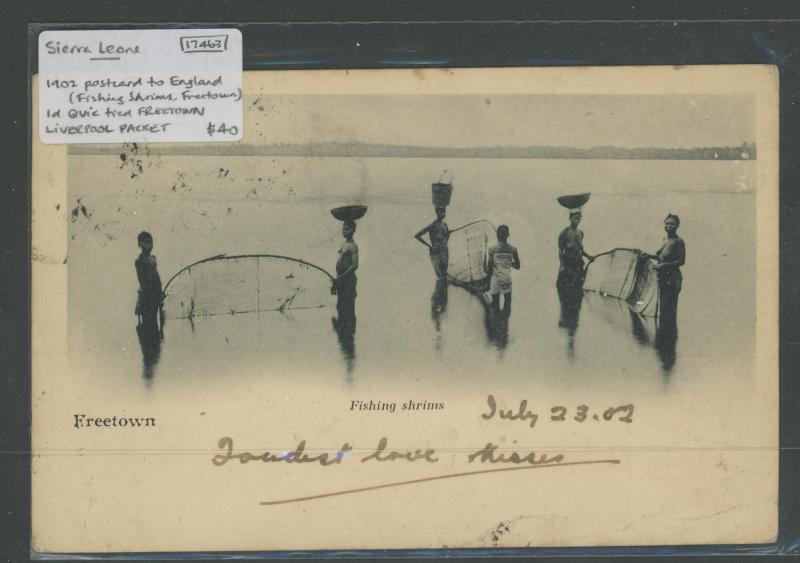 Sierra Leone 17463
1902 postcard to England
(Fishing Shrims, Freetown)
1d QVic tied FREETOWN
LIVERPOOL PACKET $40
Fishing shrims
July 23.02
Freetown
Fondest love Kisses